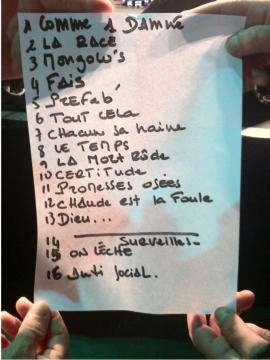 1 COMME 1 DAMNÉ
2 LA RACE
3 MONGOLO'S
4 FAIS
5 PREFAB'
6 TOUT CELA
7 CHACUN SA HAINE
8 LE TEMPS
9 LA MORT RÔDE
10 CERTITUDE
11 PROMESSES OSÉES
12 CHAUDE EST LA FOULE
13 DIEU...
14 SURVEILLES-
15 ON LÈCHE
16 ANTI SOCIAL.